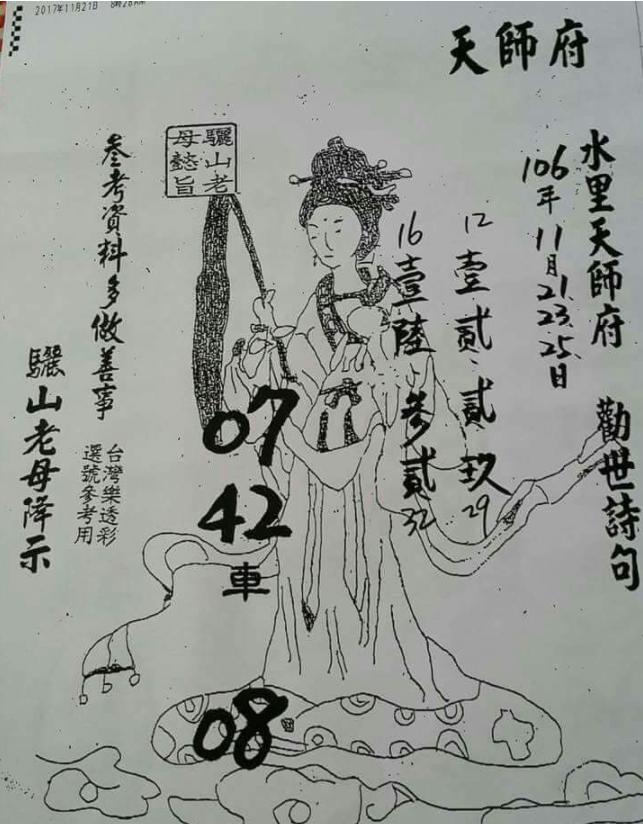 2017年11月21日
天師府
水里天師府 勸世詩句
106年11月21.23.25.日
12
壹貳、貳玖
29
16
壹陸、參貳
32
驪山老
母懿旨
07
42
車
08
參考資料多做善事
台灣樂透彩
選號參考用
驪山老母降示